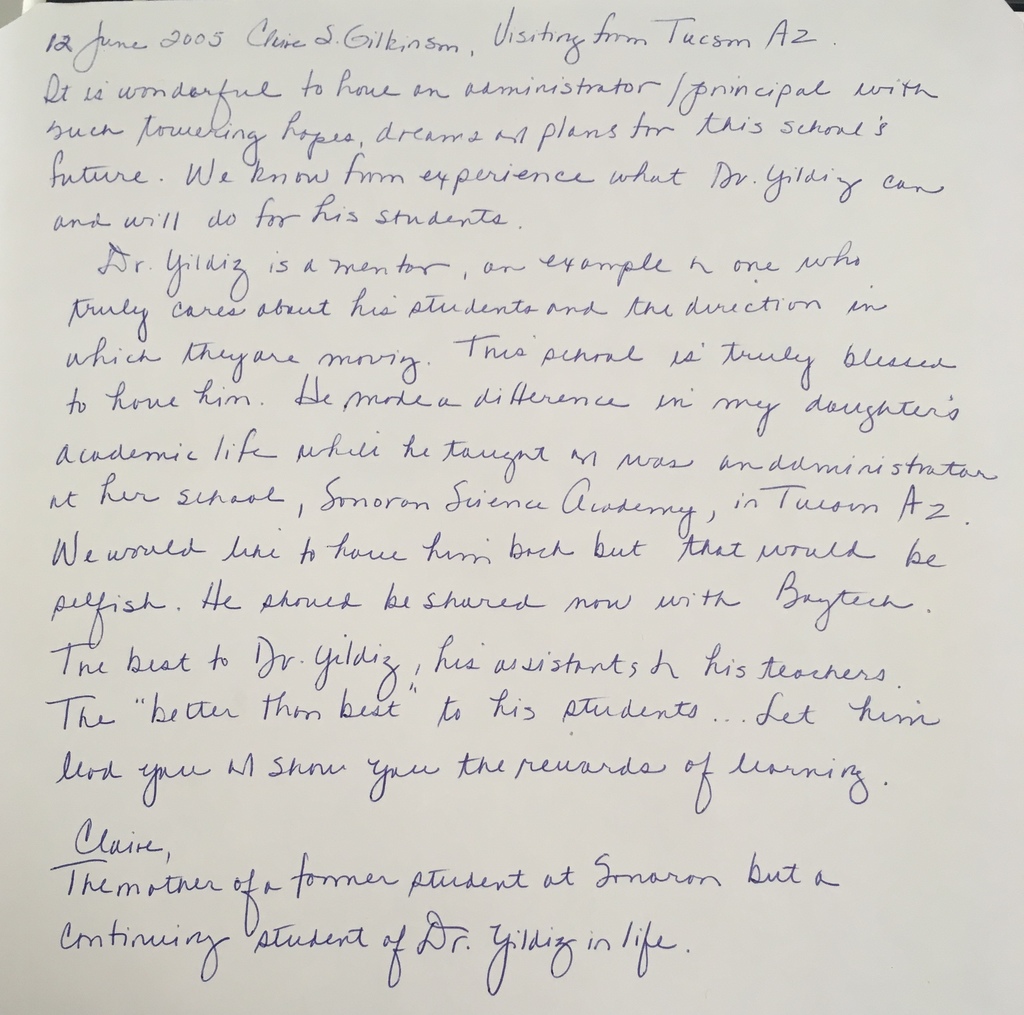 12 June 2005 Claire S. Gilkinson, Visiting from Tucson AZ.
It is wonderful to have an administrator/principal with
such towering hopes, dreams and plans for this school's
future. We know from experience what Dr. Yildiz can
and will do for his students.
Dr. Yildiz is a mentor, an example & one who
truly cares about his students and the direction in
which they are moving. This school is truly blessed
to have him. He made a difference in my daughter's
academic life while he taught and was an administrator
at her school, Sonoran Science Academy, in Tucson AZ.
We would like to have him back but that would be
selfish. He should be shared now with Baytech.
The best to Dr. Yildiz, his assistants, & his teachers.
The "better than best" to his students... Let him
lead you and show you the rewards of learning.
Claire,
The mother of a former student at Sonoran but a
continuing student of Dr. Yildiz in life.